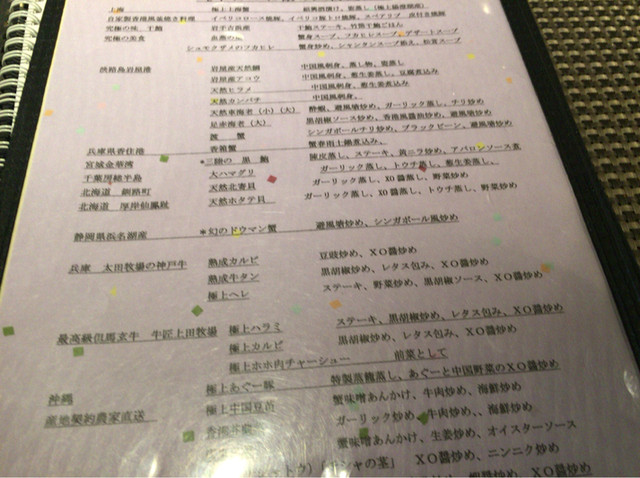 上海 極上上海蟹
自家製香港風釜焼き料理 イベリコロース焼豚、イベリコ豚トロ焼豚、スペアリブ 皮付き焼豚
究極の味、干鮑 岩手吉浜産 干鮑ステーキ、竹籠干鮑ごはん
究極の美食 蟹身スープ、フカヒレスープ、デザートスープ
シュモクザメのフカヒレ 蟹身炒め、シャンタンスープ揃え、松茸スープ
淡路島岩屋港 岩屋産天然鯛 中国風刺身、蒸し物、姿蒸し
岩屋産アコウ 中国風刺身、葱生姜蒸し、豆腐煮込み
天然ヒラメ 中国風刺身、葱生姜煮込み
天然カンパチ 中国風刺身、
天然車海老(小)(大) 酔蝦、避風塘炒め、ガーリック蒸し、チリ炒め
足赤海老(大) 黒胡椒ソース炒め、香港風醤油炒め、避風塘炒め
渡 蟹 シンガポールチリ炒め、ブラックビーン、避風塘炒め
兵庫県香住港 香箱蟹 蟹春雨土鍋煮込み、
宮城金華湾 *三陸の 黒 鮑 陳皮蒸し、ステーキ、黄ニラ炒め、アバロンソース煮
千葉房総半島 大ハマグリ ガーリック蒸し、トウチ蒸し、葱生姜蒸し、
北海道 釧路町 天然北寄貝 ガーリック蒸し、XO醤蒸し、野菜炒め
北海道 厚岸仙鳳趾 天然ホタテ貝 ガーリック蒸し、XO醤蒸し、トウチ蒸し、野菜炒め
静岡県浜名湖産 *幻のドウマン蟹 避風塘炒め、シンガポール風炒め
兵庫 太田牧場の神戸牛 熟成カルビ 豆豉炒め、XO醤炒め
熟成牛タン 黒胡椒炒め、レタス包み、XO醤炒め
極上ヘレ ステーキ、野菜炒め、黒胡椒ソース、XO醤炒め
最高級但馬玄牛 牛匠上田牧場 極上ハラミ ステーキ、黒胡椒炒め、レタス包み、XO醤炒め
極上カルビ 黒胡椒炒め、レタス包み、XO醤炒め
極上ホホ肉チャーシュー 前菜として
沖縄 極上あぐー豚 特製蒸籠蒸し、あぐーと中国野菜のXO醤炒め
産地契約農家直送 極上中国豆苗 蟹味噌あんかけ、牛肉炒め、海鮮炒め
ガーリック炒め、牛肉炒め、海鮮炒め
蟹味噌あんかけ、生姜炒め、オイスターソース
XO醤炒め、ニンニク炒め